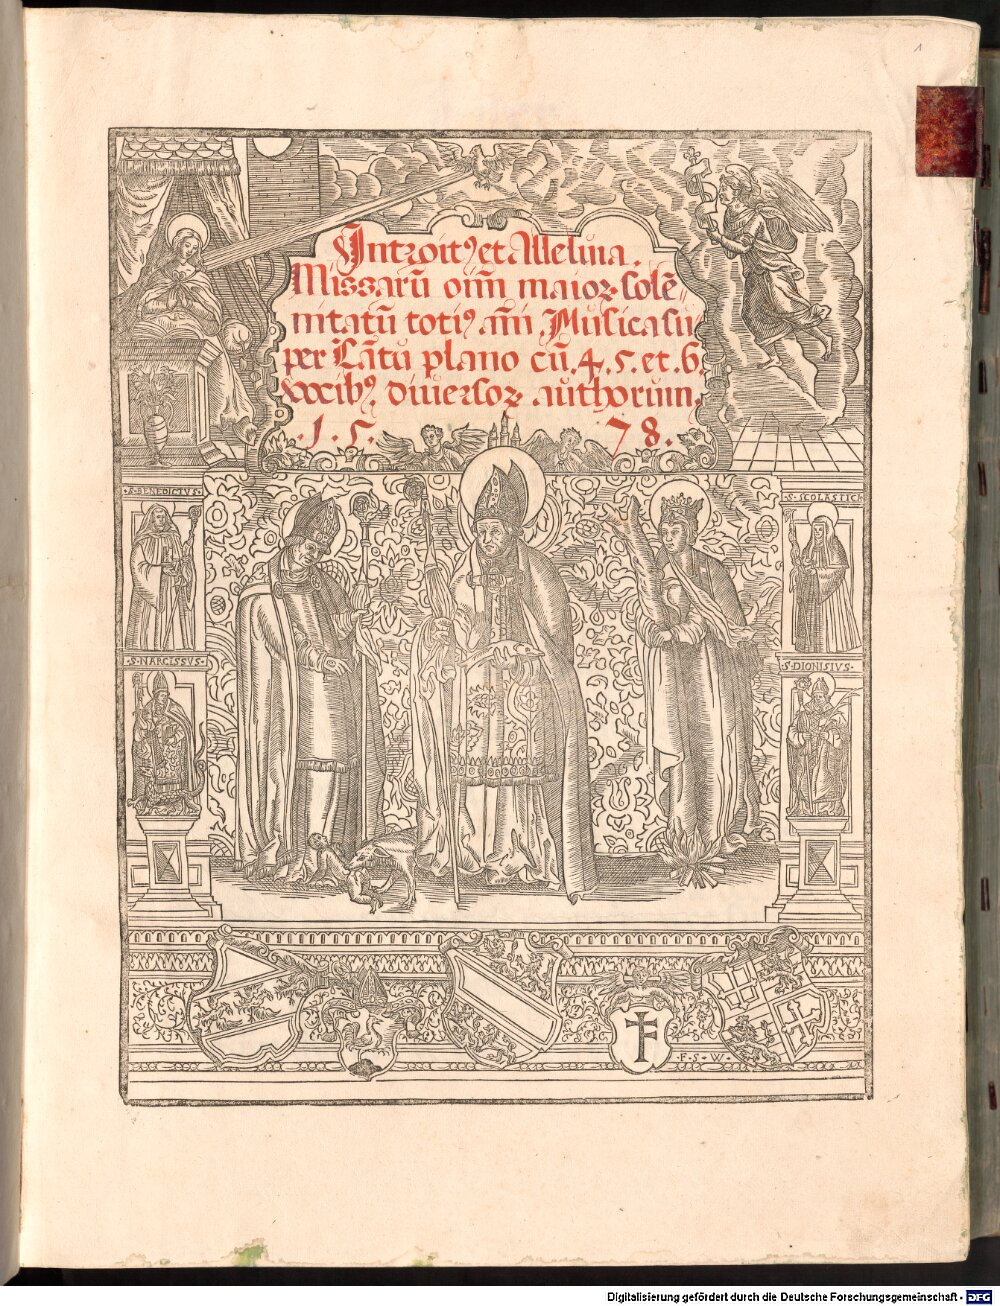 1
Introitꝰ et Alleluia.
Missarū oīm maioꝝ solē=
nitatū totiꝰ añi Musica su
per Cātu plano cū .4.5. et .6.
Vocibꝰ diuersoꝝ authorum.
.1.5. 78.
·S·BENEDICTVS·
·S·SCOLASTICA
·S·NARCISSVS·
·S·DIONISIVS·
·F·S·W·
Digitalisierung gefördert durch die Deutsche Forschungsgemeinschaft - DFG